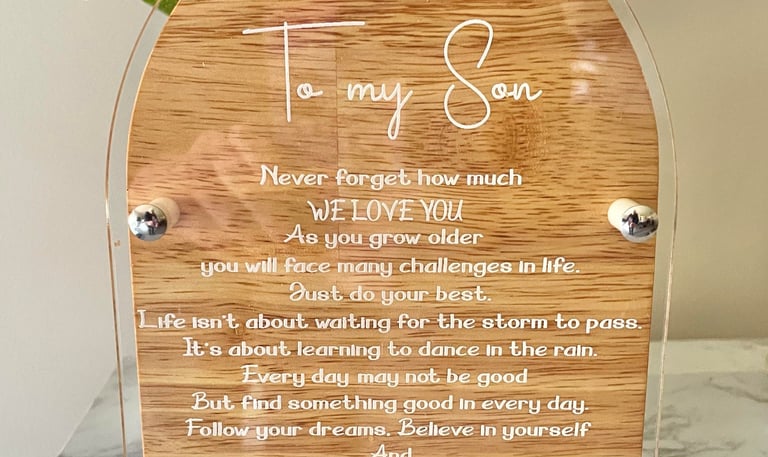 To my Son
Never forget how much
WE LOVE YOU
As you grow older
you will face many challenges in life.
Just do your best.
Life isn't about waiting for the storm to pass.
It's about learning to dance in the rain.
Every day may not be good
But find something good in every day.
Follow your dreams. Believe in yourself
And